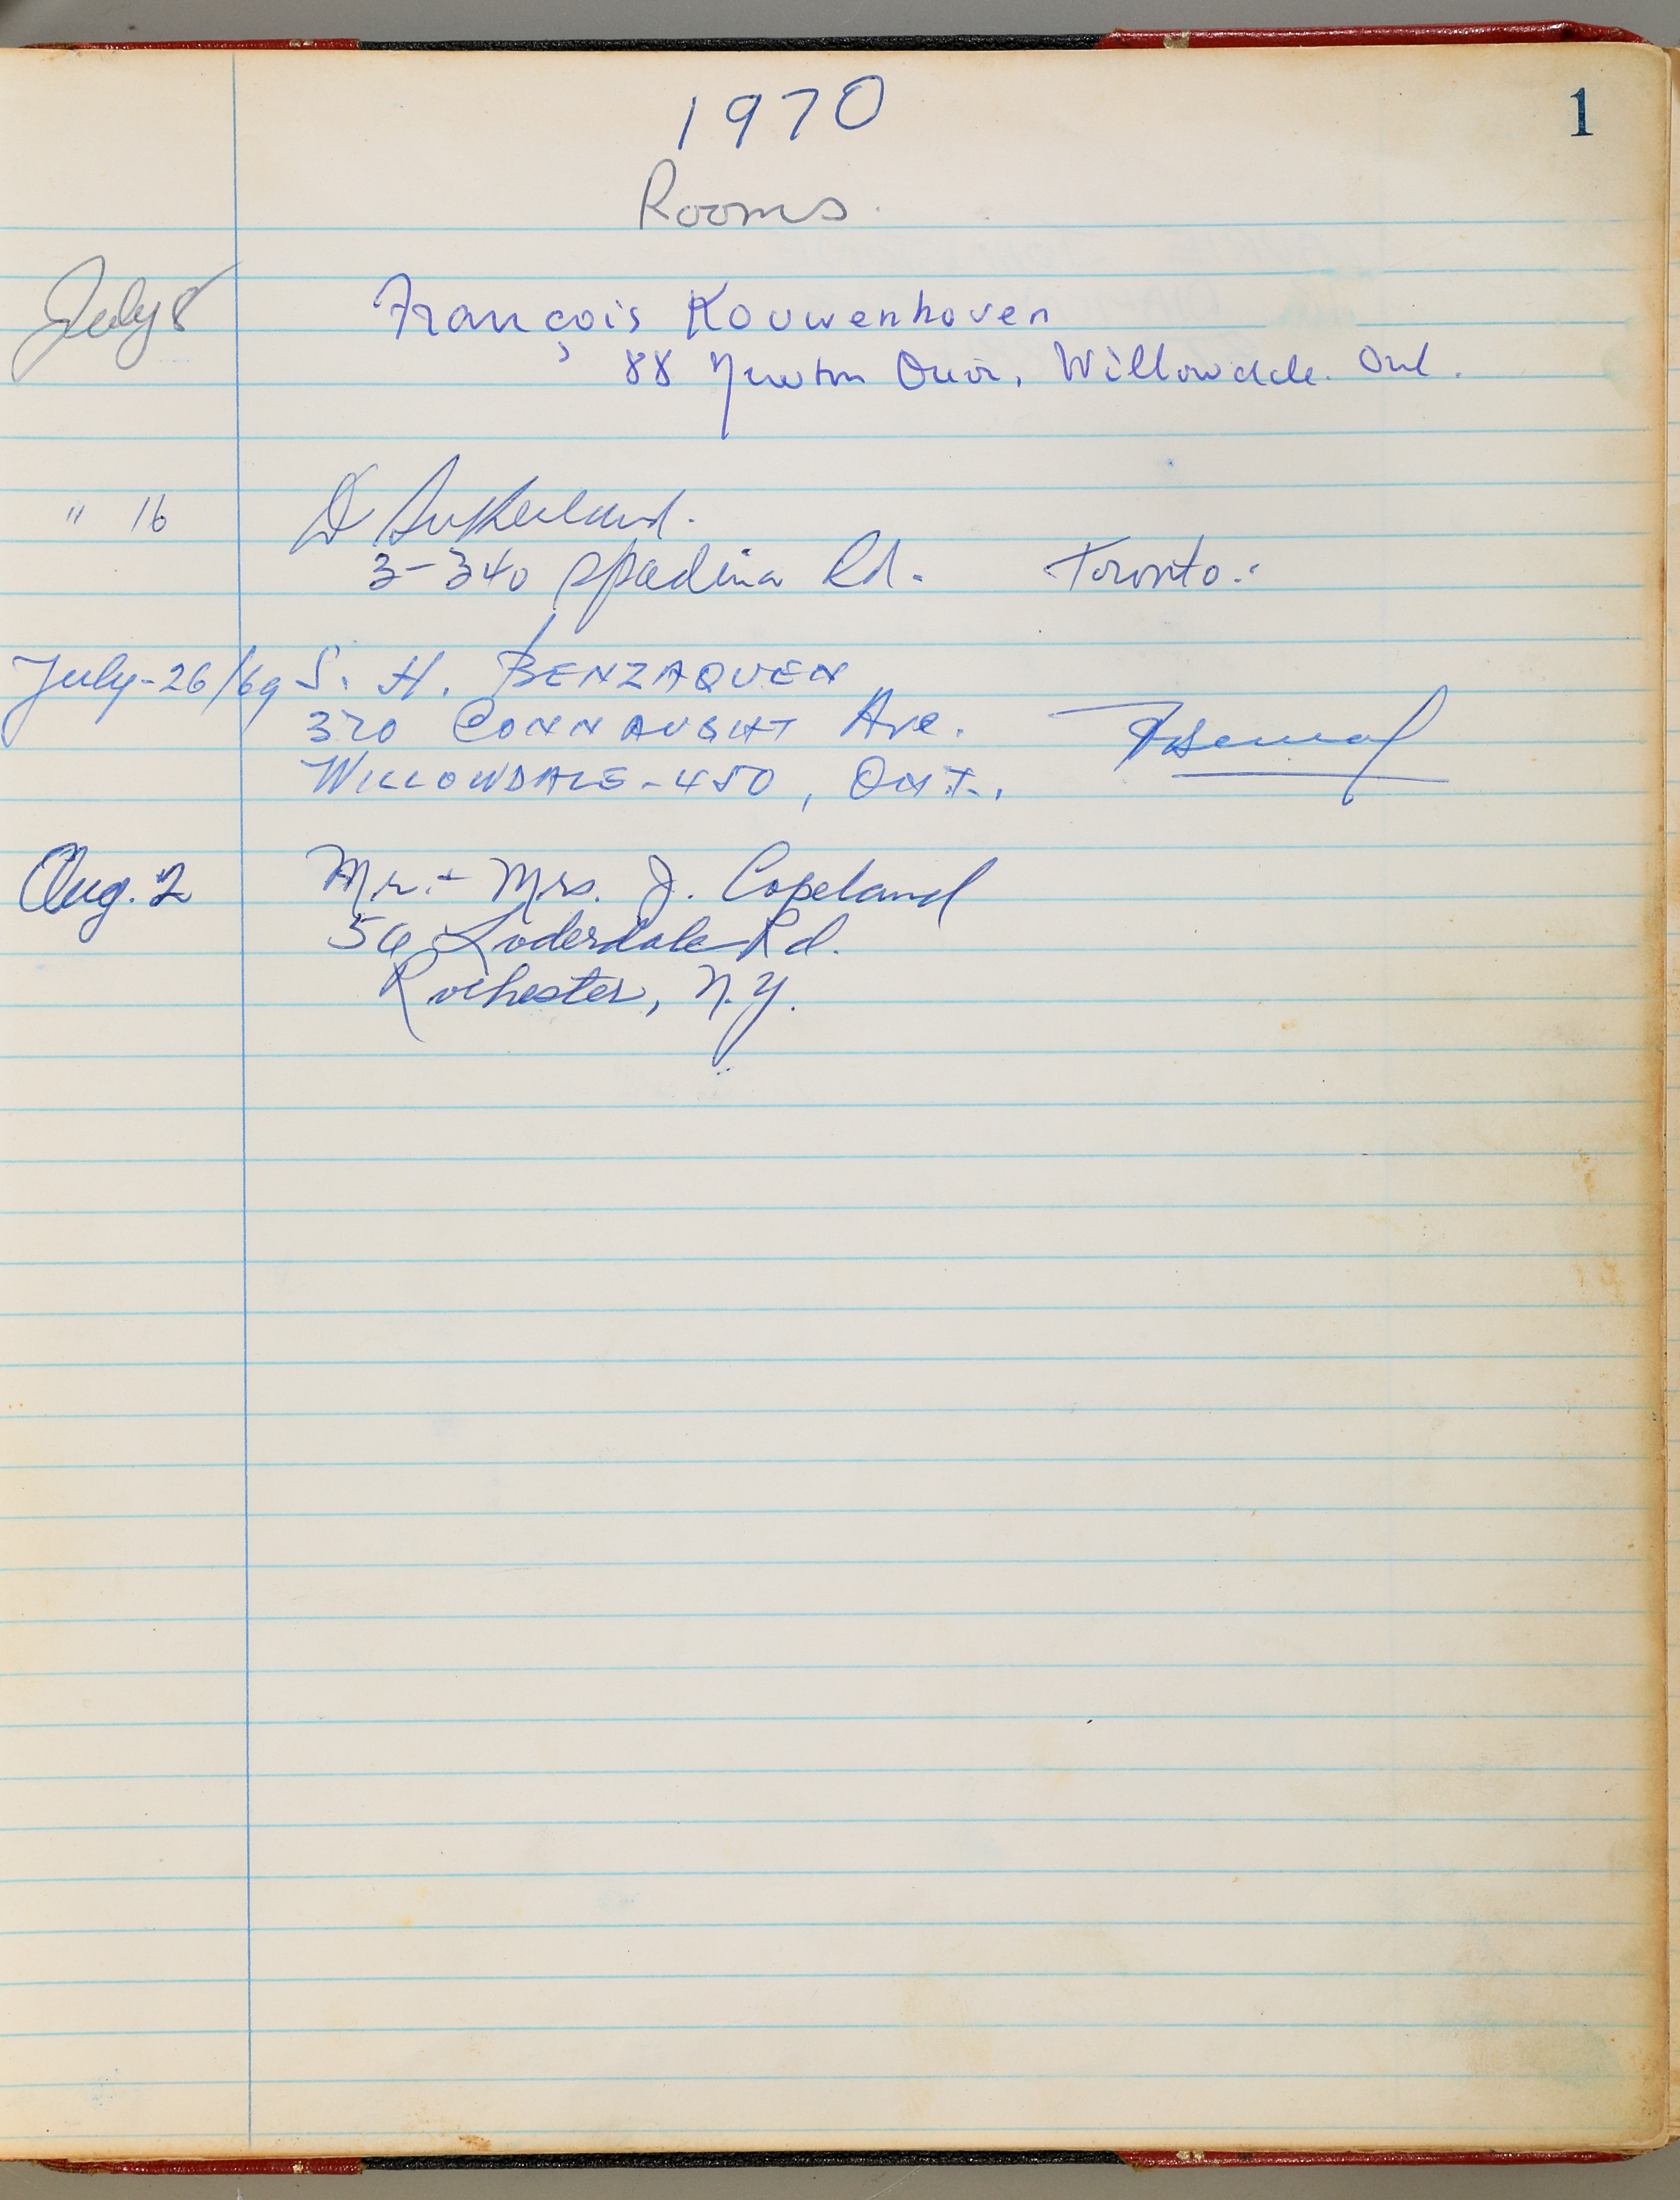 1970
1
Rooms.
July 8 François Kouwenhoven
88 Newton Drive, Willowdale. Ont.
" 16 D Sutherland.
3-340 Spadina Rd. Toronto.
July-26/69 S. H. BENZAQUEN
320 CONNAUGHT Ave.
WILLOWDALE-450, ONT.
Aug. 2 Mr. + Mrs. J. Copeland
56 Loderdale Rd.
Rochester, N.Y.